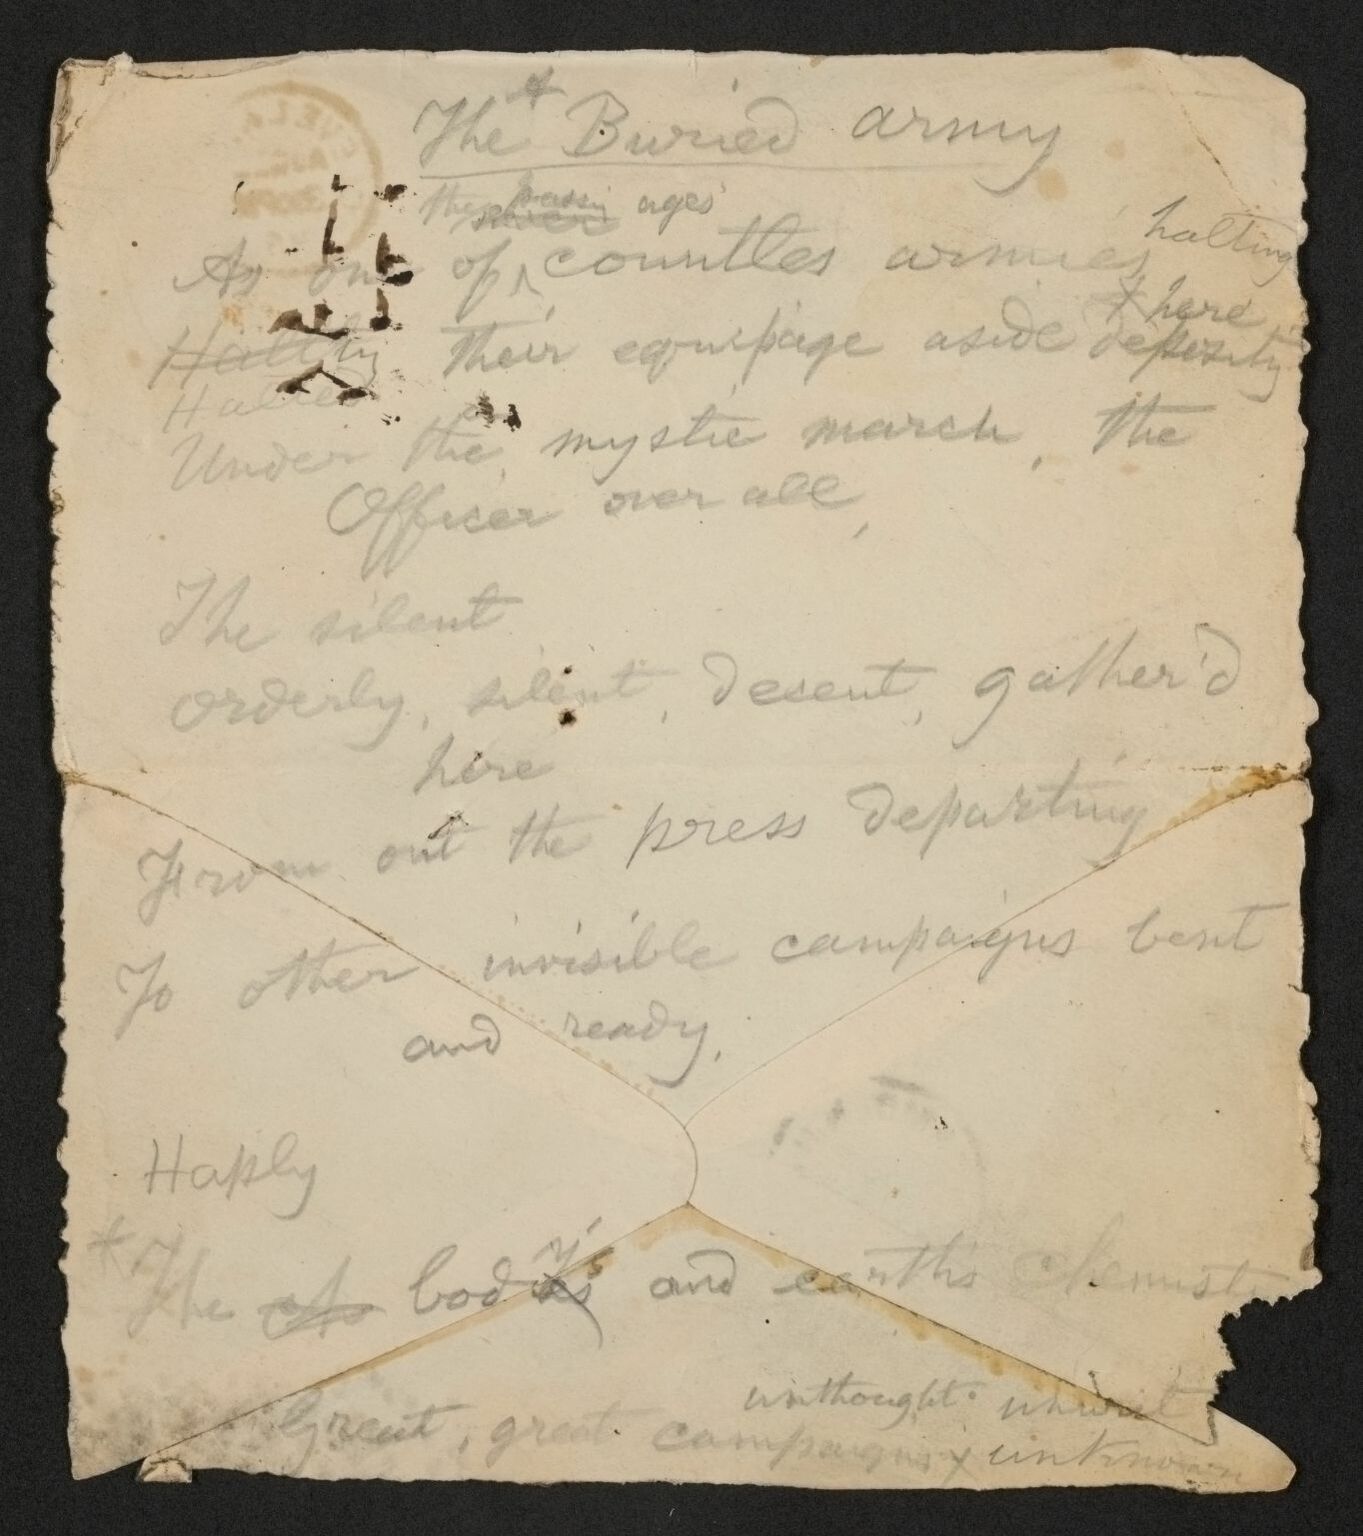 The A Buried army
the passi ages
As one of countles armies, halting
Haltby their equipage aside & here deposity
Halted
Under the mystic march, the
Officer over all,
The silent
orderly, silent, decent, gather'd
here
From out the press departing
To other invisible campaigns bent
and ready.
Haply
* The body's and earth's chemist
unthought unwrit
Great, great campaigns, unknown